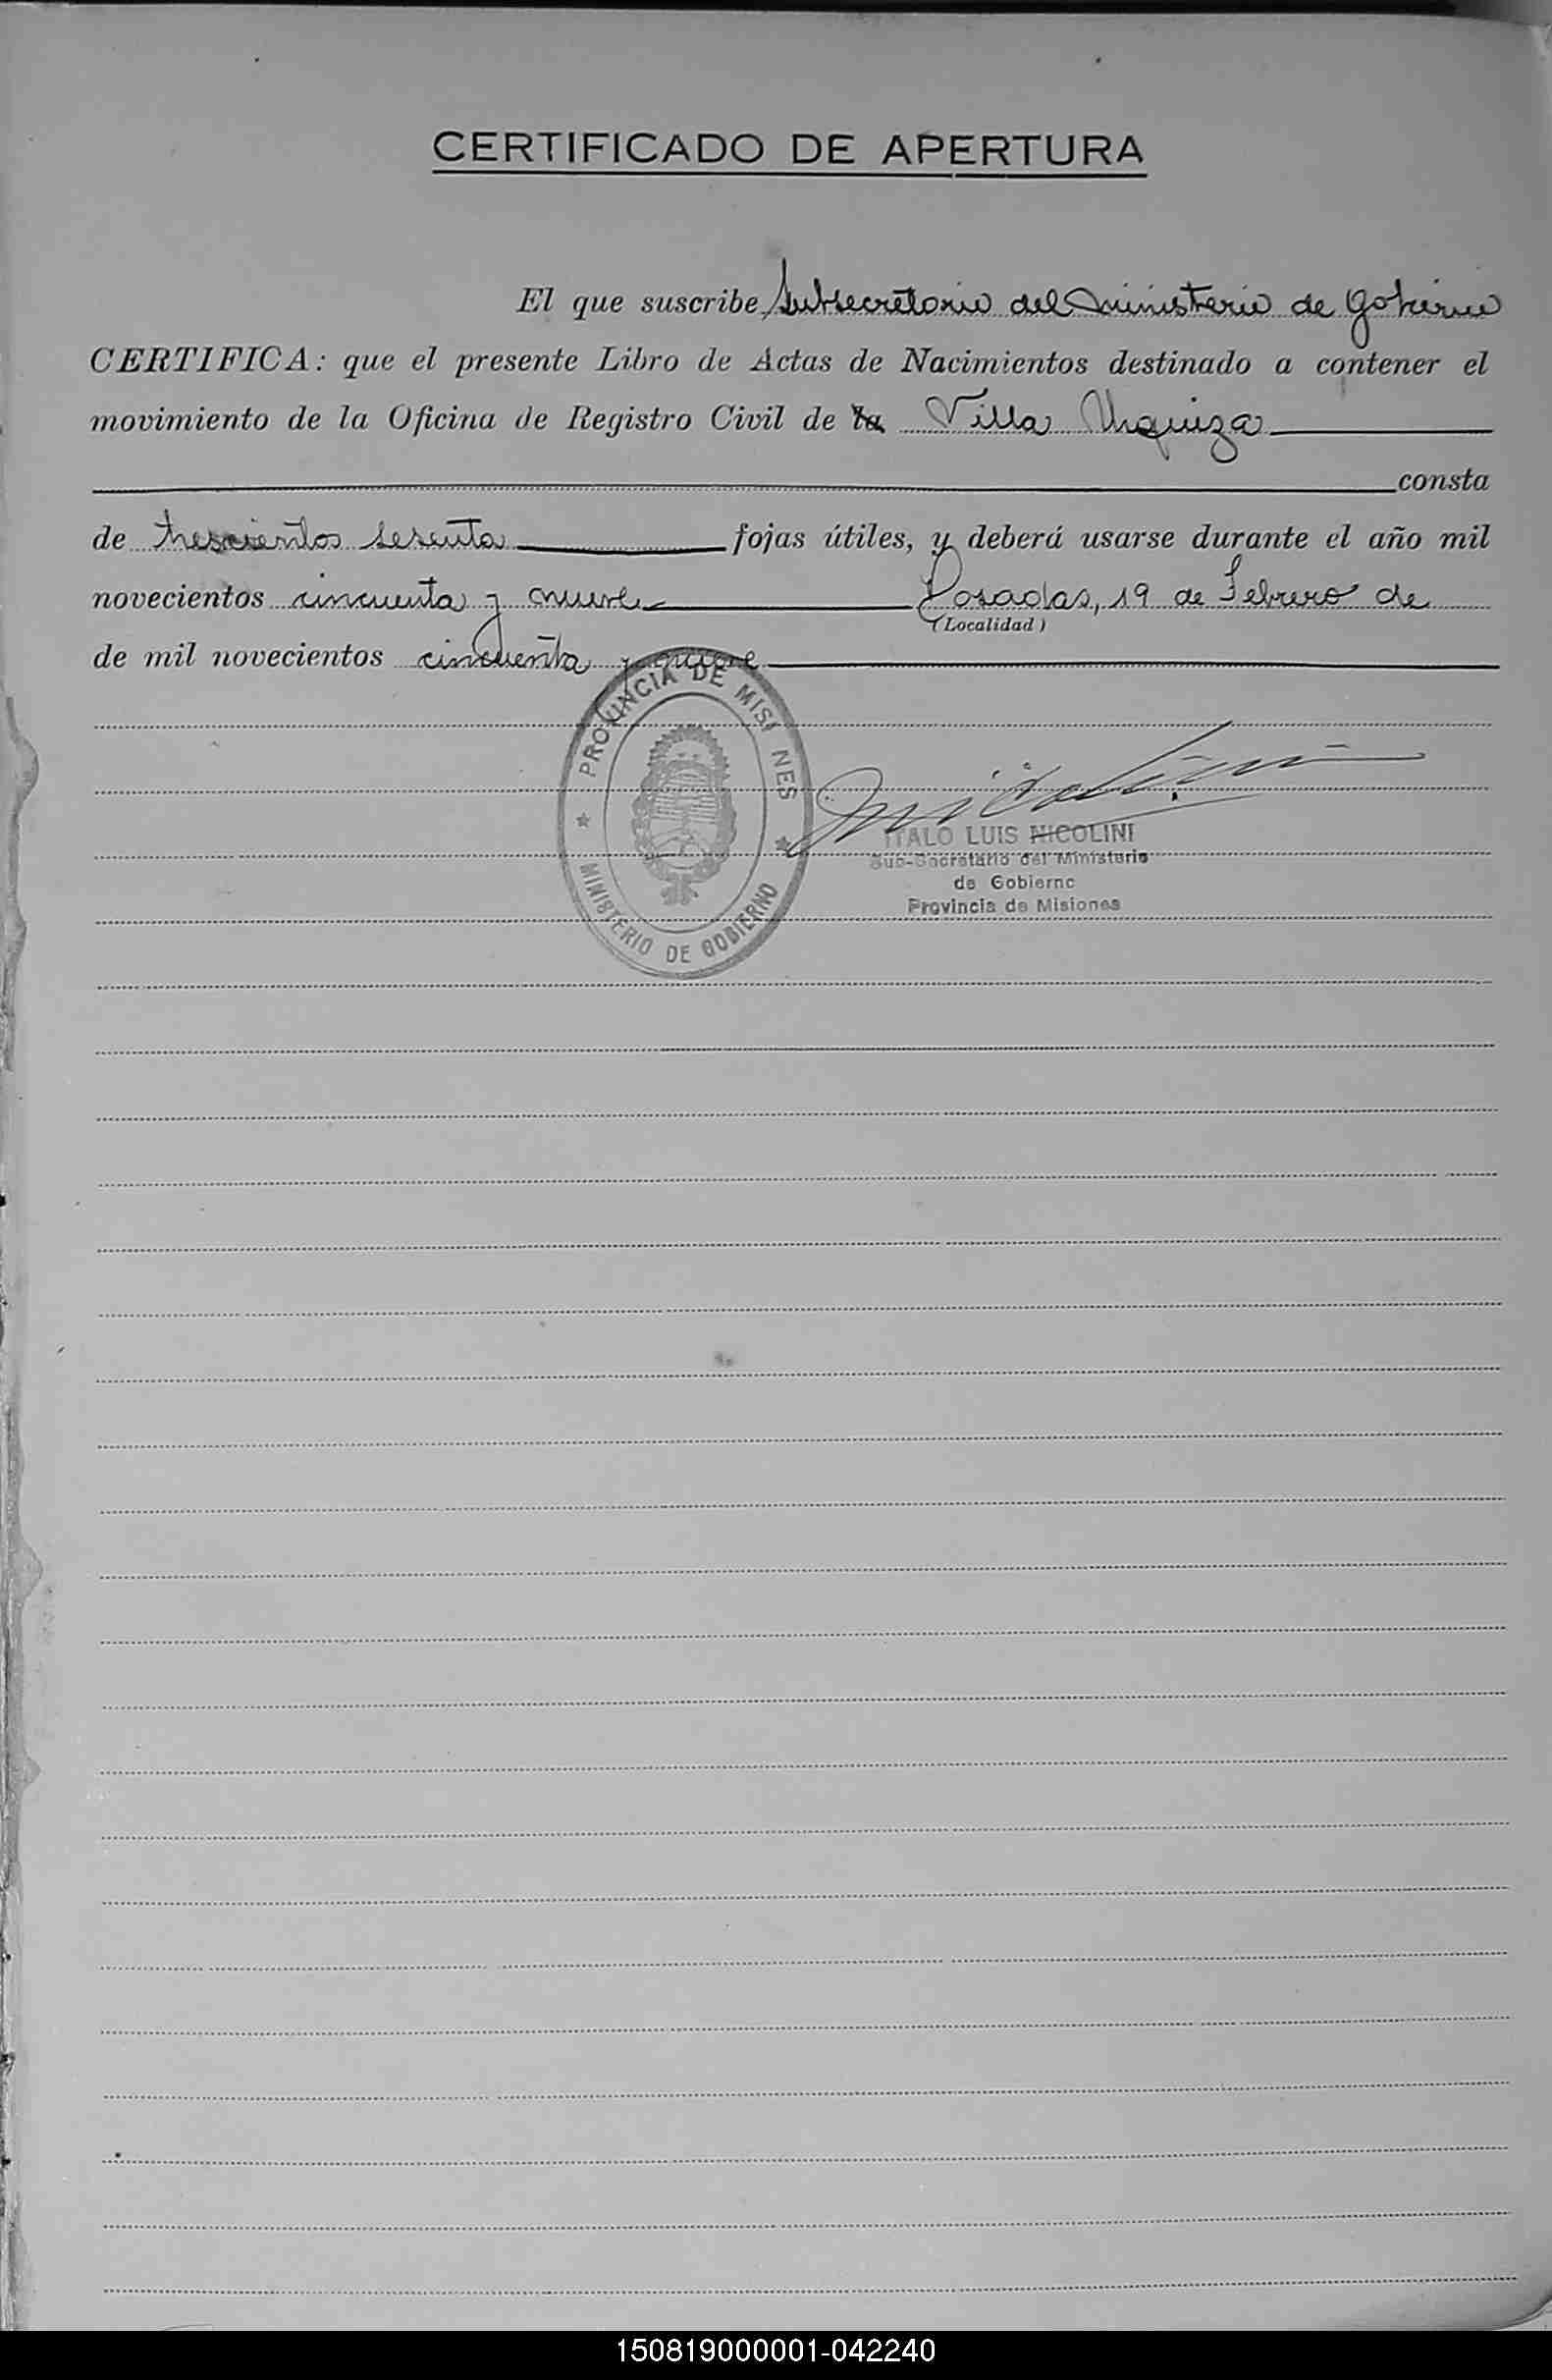 CERTIFICADO DE APERTURA
El que suscribe, Subsecretario del Ministerio de Gobierno
CERTIFICA: que el presente Libro de Actas de Nacimientos destinado a contener el
movimiento de la Oficina de Registro Civil de la Villa Urquiza
consta
de trescientos sesenta fojas útiles, y deberá usarse durante el año mil
novecientos cincuenta y nueve Posadas, 19 de Febrero de
(Localidad)
de mil novecientos cincuenta y nueve
PROVINCIA DE MISIONES
MINISTERIO DE GOBIERNO
ITALO LUIS NICOLINI
Sub-Secretario del Ministerio
de Gobierno
Provincia de Misiones
150819000001-042240